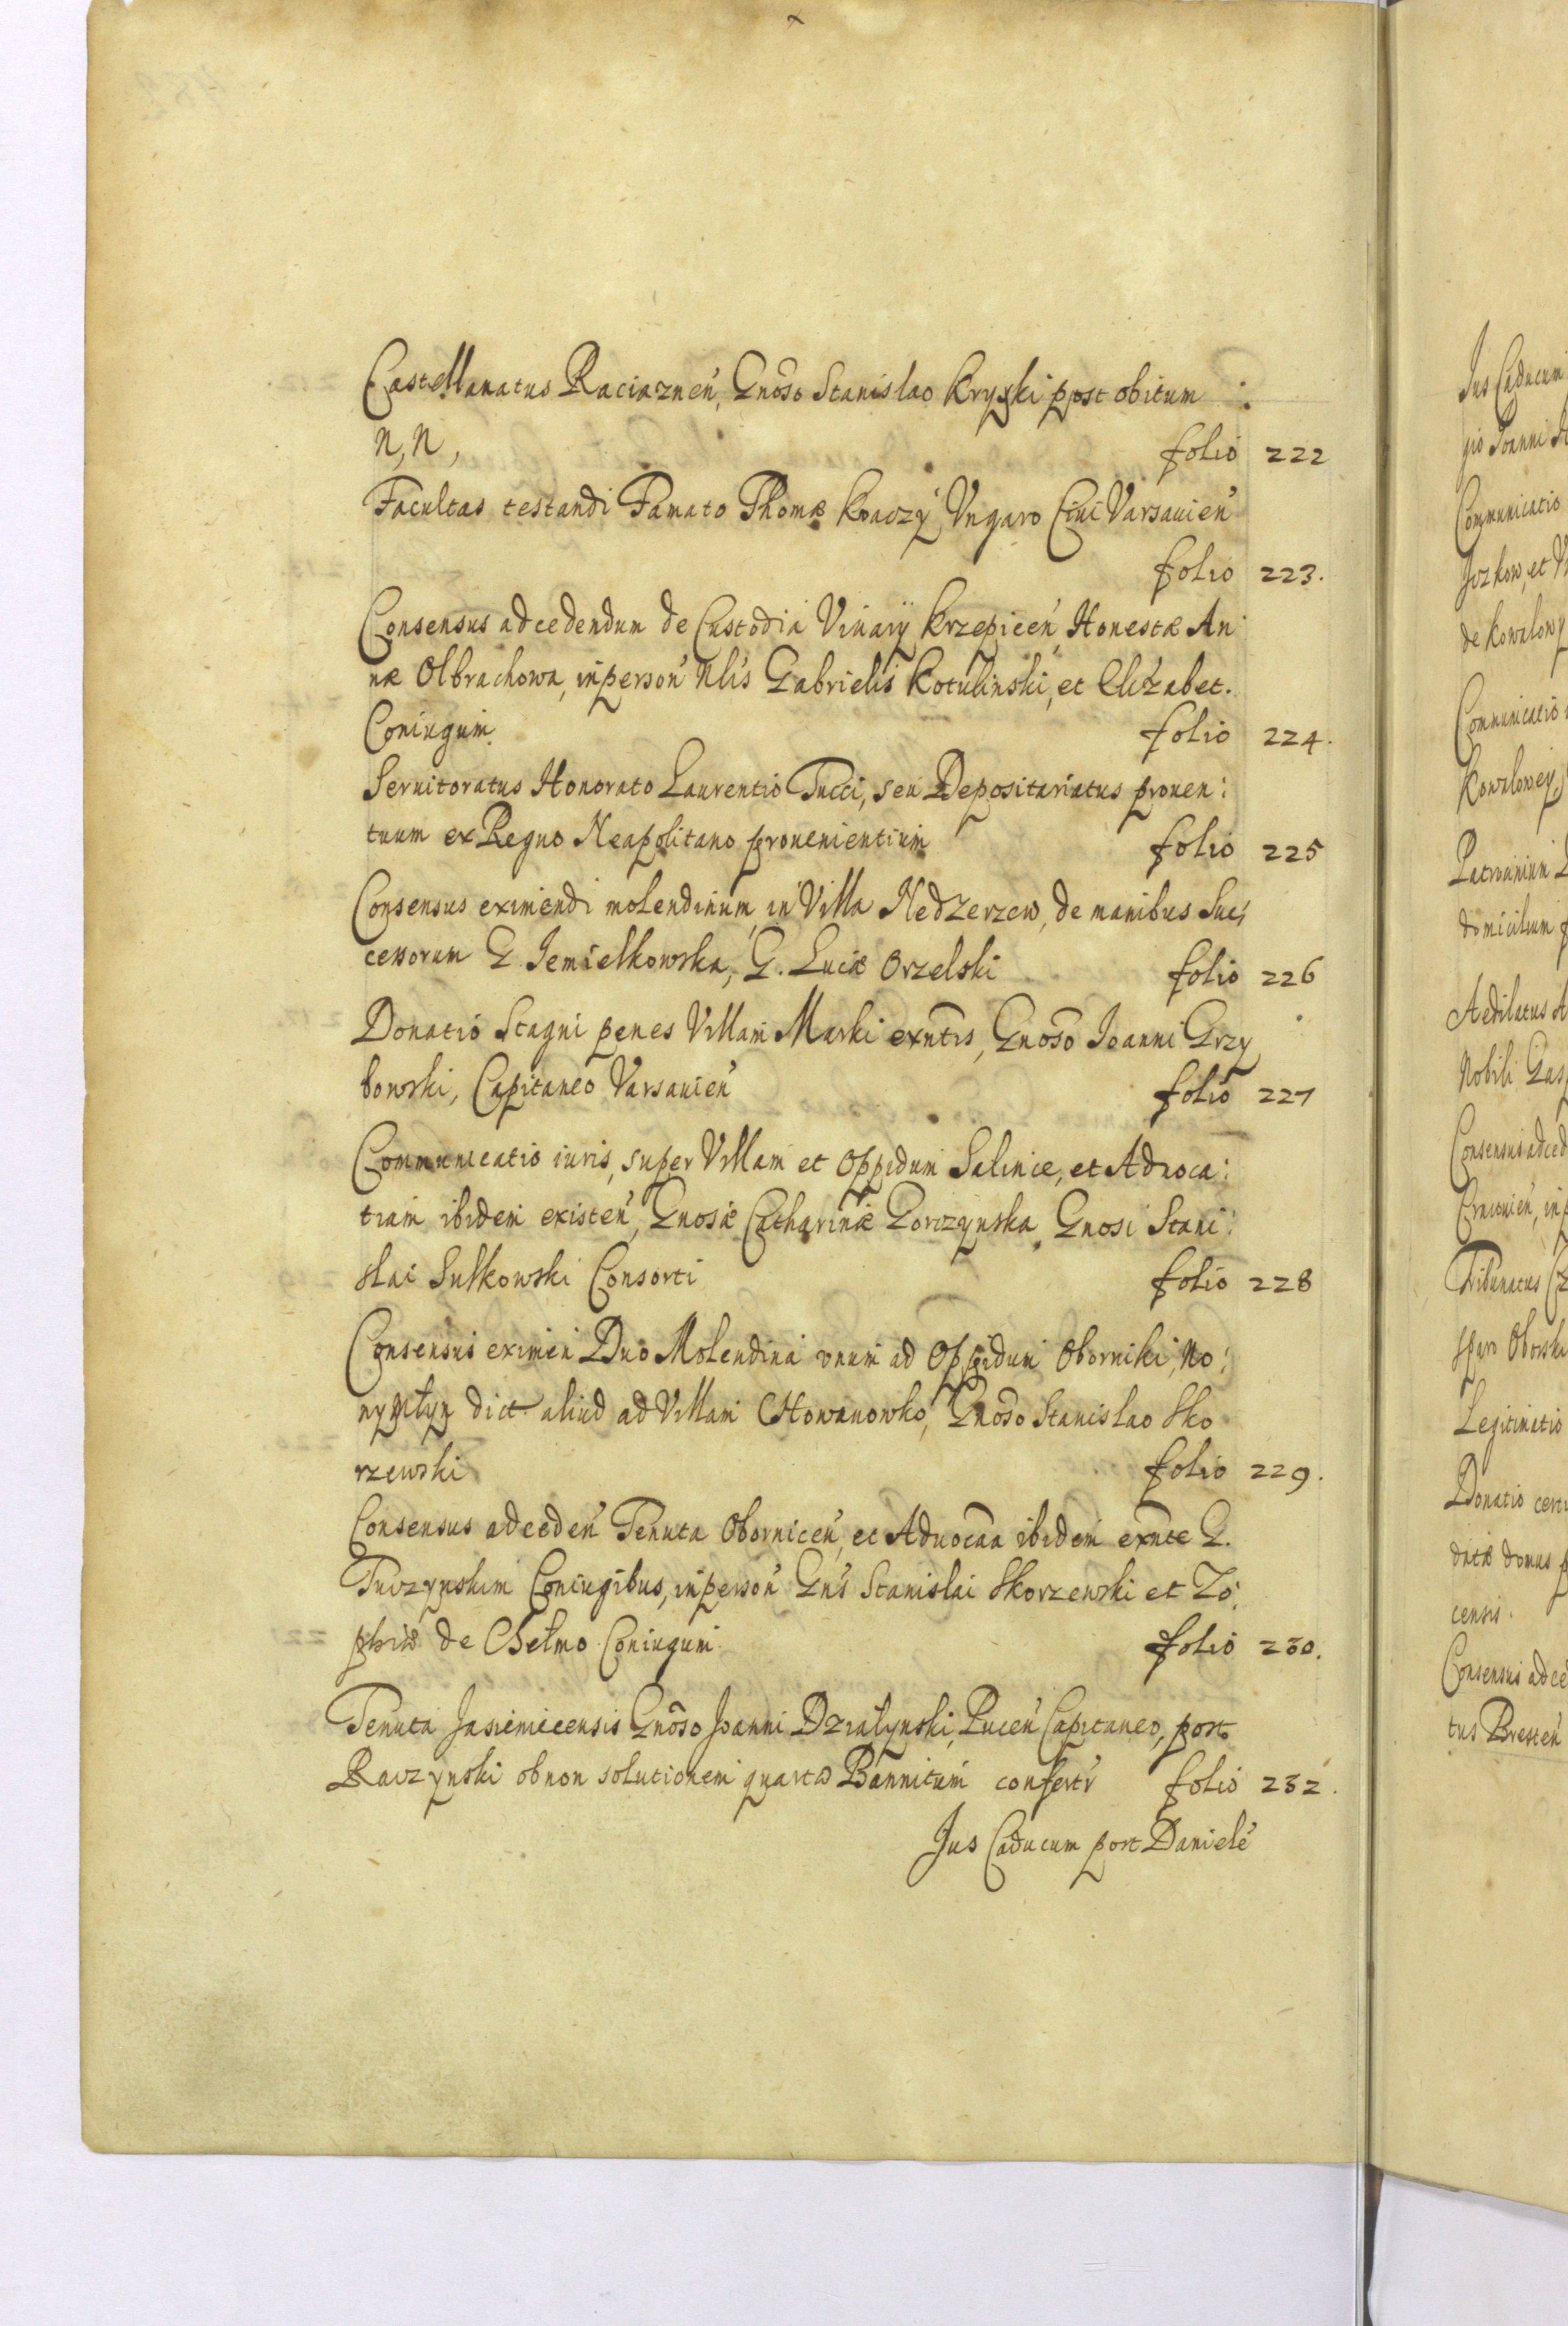 Castellanatus Raciaznen, Gnoso Stanislao Kryski post obitum :
N, N, folio 222
Facultas testandi Famato Thomæ Koaczÿ Vngaro Ciui Varsauien
folio 223.
Consensus adcedendum de Custodia Vinarÿ Krzepicen, Honestæ An
næ Olbrachowa, inperson Nlis Gabrielis Kotulinski, et Elizabet.
Coniugum folio 224.
Seruitoratus Honorato Laurentio Tucci, seu Depositariatus prouen:
tuum ex Regno Neapolitano prouenientium folio 225
Consensus eximendi molendinum in Villa Nedzerzew, de manibus Suc,
cessorum G. Jemielkowska, G. Lucæ Orzelski folio 226
Donatio Stagni penes Villam Marki exntis, Gnoso Ioanni Grzy
bowski, Capitaneo Varsauien folio 227
Communicatio iuris, super Villam et Oppidum Salince, et Aduoca:
tiam ibidem existen, Gnosæ Catharinæ Gorczynska, Gnosi Stani:
slai Sulkowski Consorti folio 228
Consensus eximen Duo Molendina vnum ad Oppidum Oborniki, No:
ny Młyn dict. aliud ad Villam Howanowko, Gnoso Stanislao Sko
rzewski folio 229.
Consensus adceden Tenuta Obornicen, et Aduocaa ibidem exnte G.
Tuczynskim Coniugibus, inperson Gns Stanislai Skorzewski et Zo:
phiæ de Chełmo Coniugum folio 230.
Tenuta Jasieniecensis Gnoso Joanni Działynski, Pucen Capitaneo, post
Raczynski obnon solutionem quartæ Bannitum confertr folio 232.
Jus Caducum post Daniele
Jus Caducum
gio Ioanni
Communicatio
de Kowalowy
Communicatio
Kowalowey,
domicilium
Aedilatus
Nobili Gas
Consensus adced
Tribunatus
Legitimatio
Donatio
domus
censis.
Consensus adce
tus Bresten